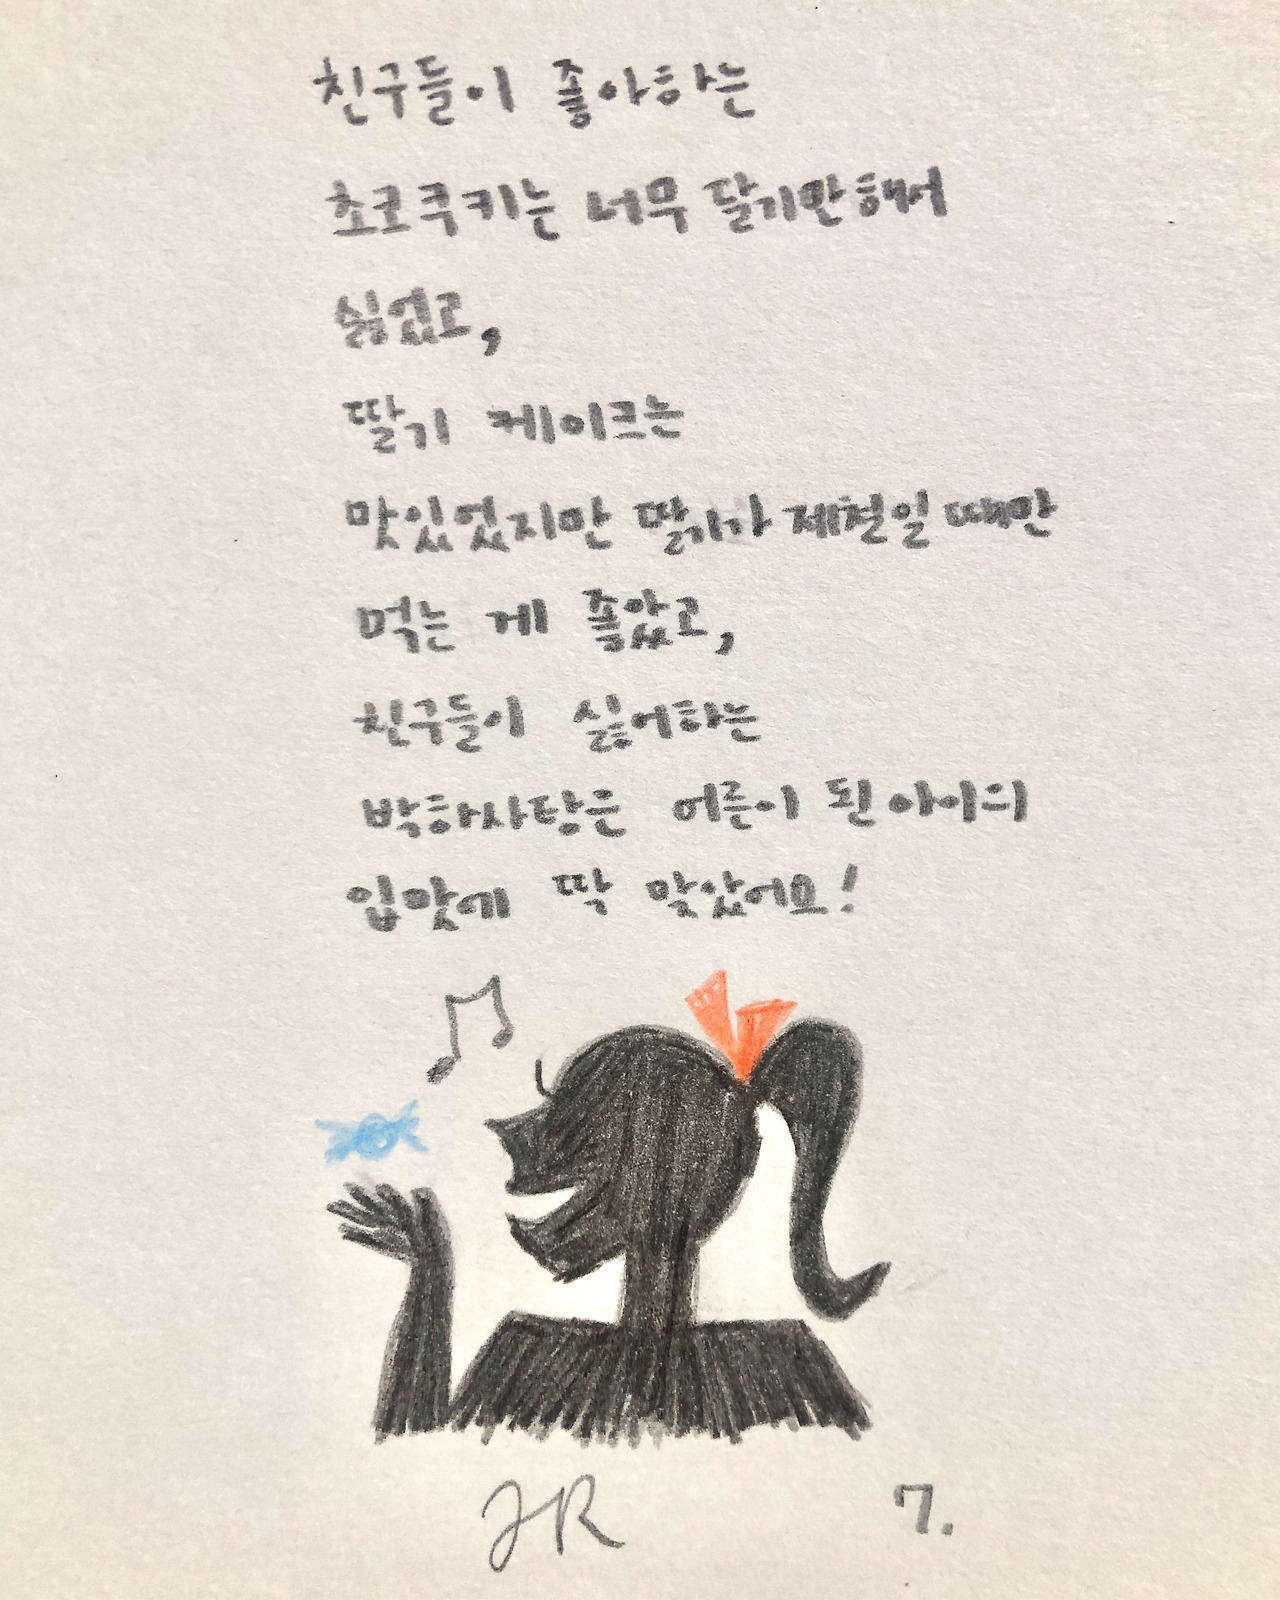 친구들이 좋아하는
초코쿠키는 너무 달기만해서
싫었고,
딸기 케이크는
맛있었지만 딸기가 제철일 때만
먹는 게 좋았고,
친구들이 싫어하는
박하사탕은 어른이 된 아이의
입맛에 딱 맞았어요!
JR 7.